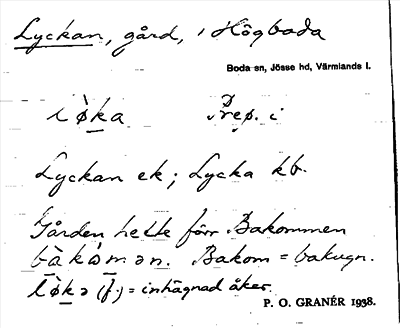 Lyckan, gård, i Högboda
Boda sn, Jösse hd, Värmlands l.
lø̀ka Prep. i
Lyckan ek; Lycka kb.
Gården hette förr Bakommen
bàkåmən. Bakom = bakugn.
lø̀kə (f.) = inhägnad åker.
P. O. GRANÉR 1938.